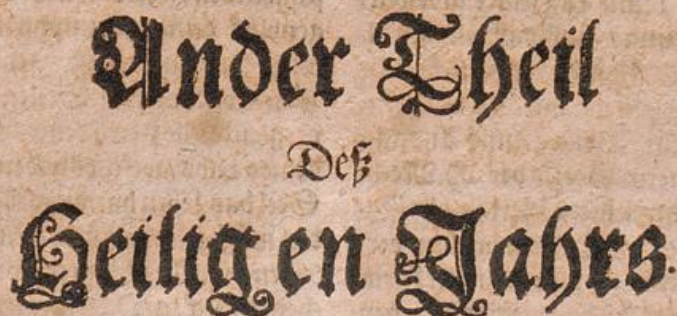 Ander Theil
Deß
Heiligen Jahrs.